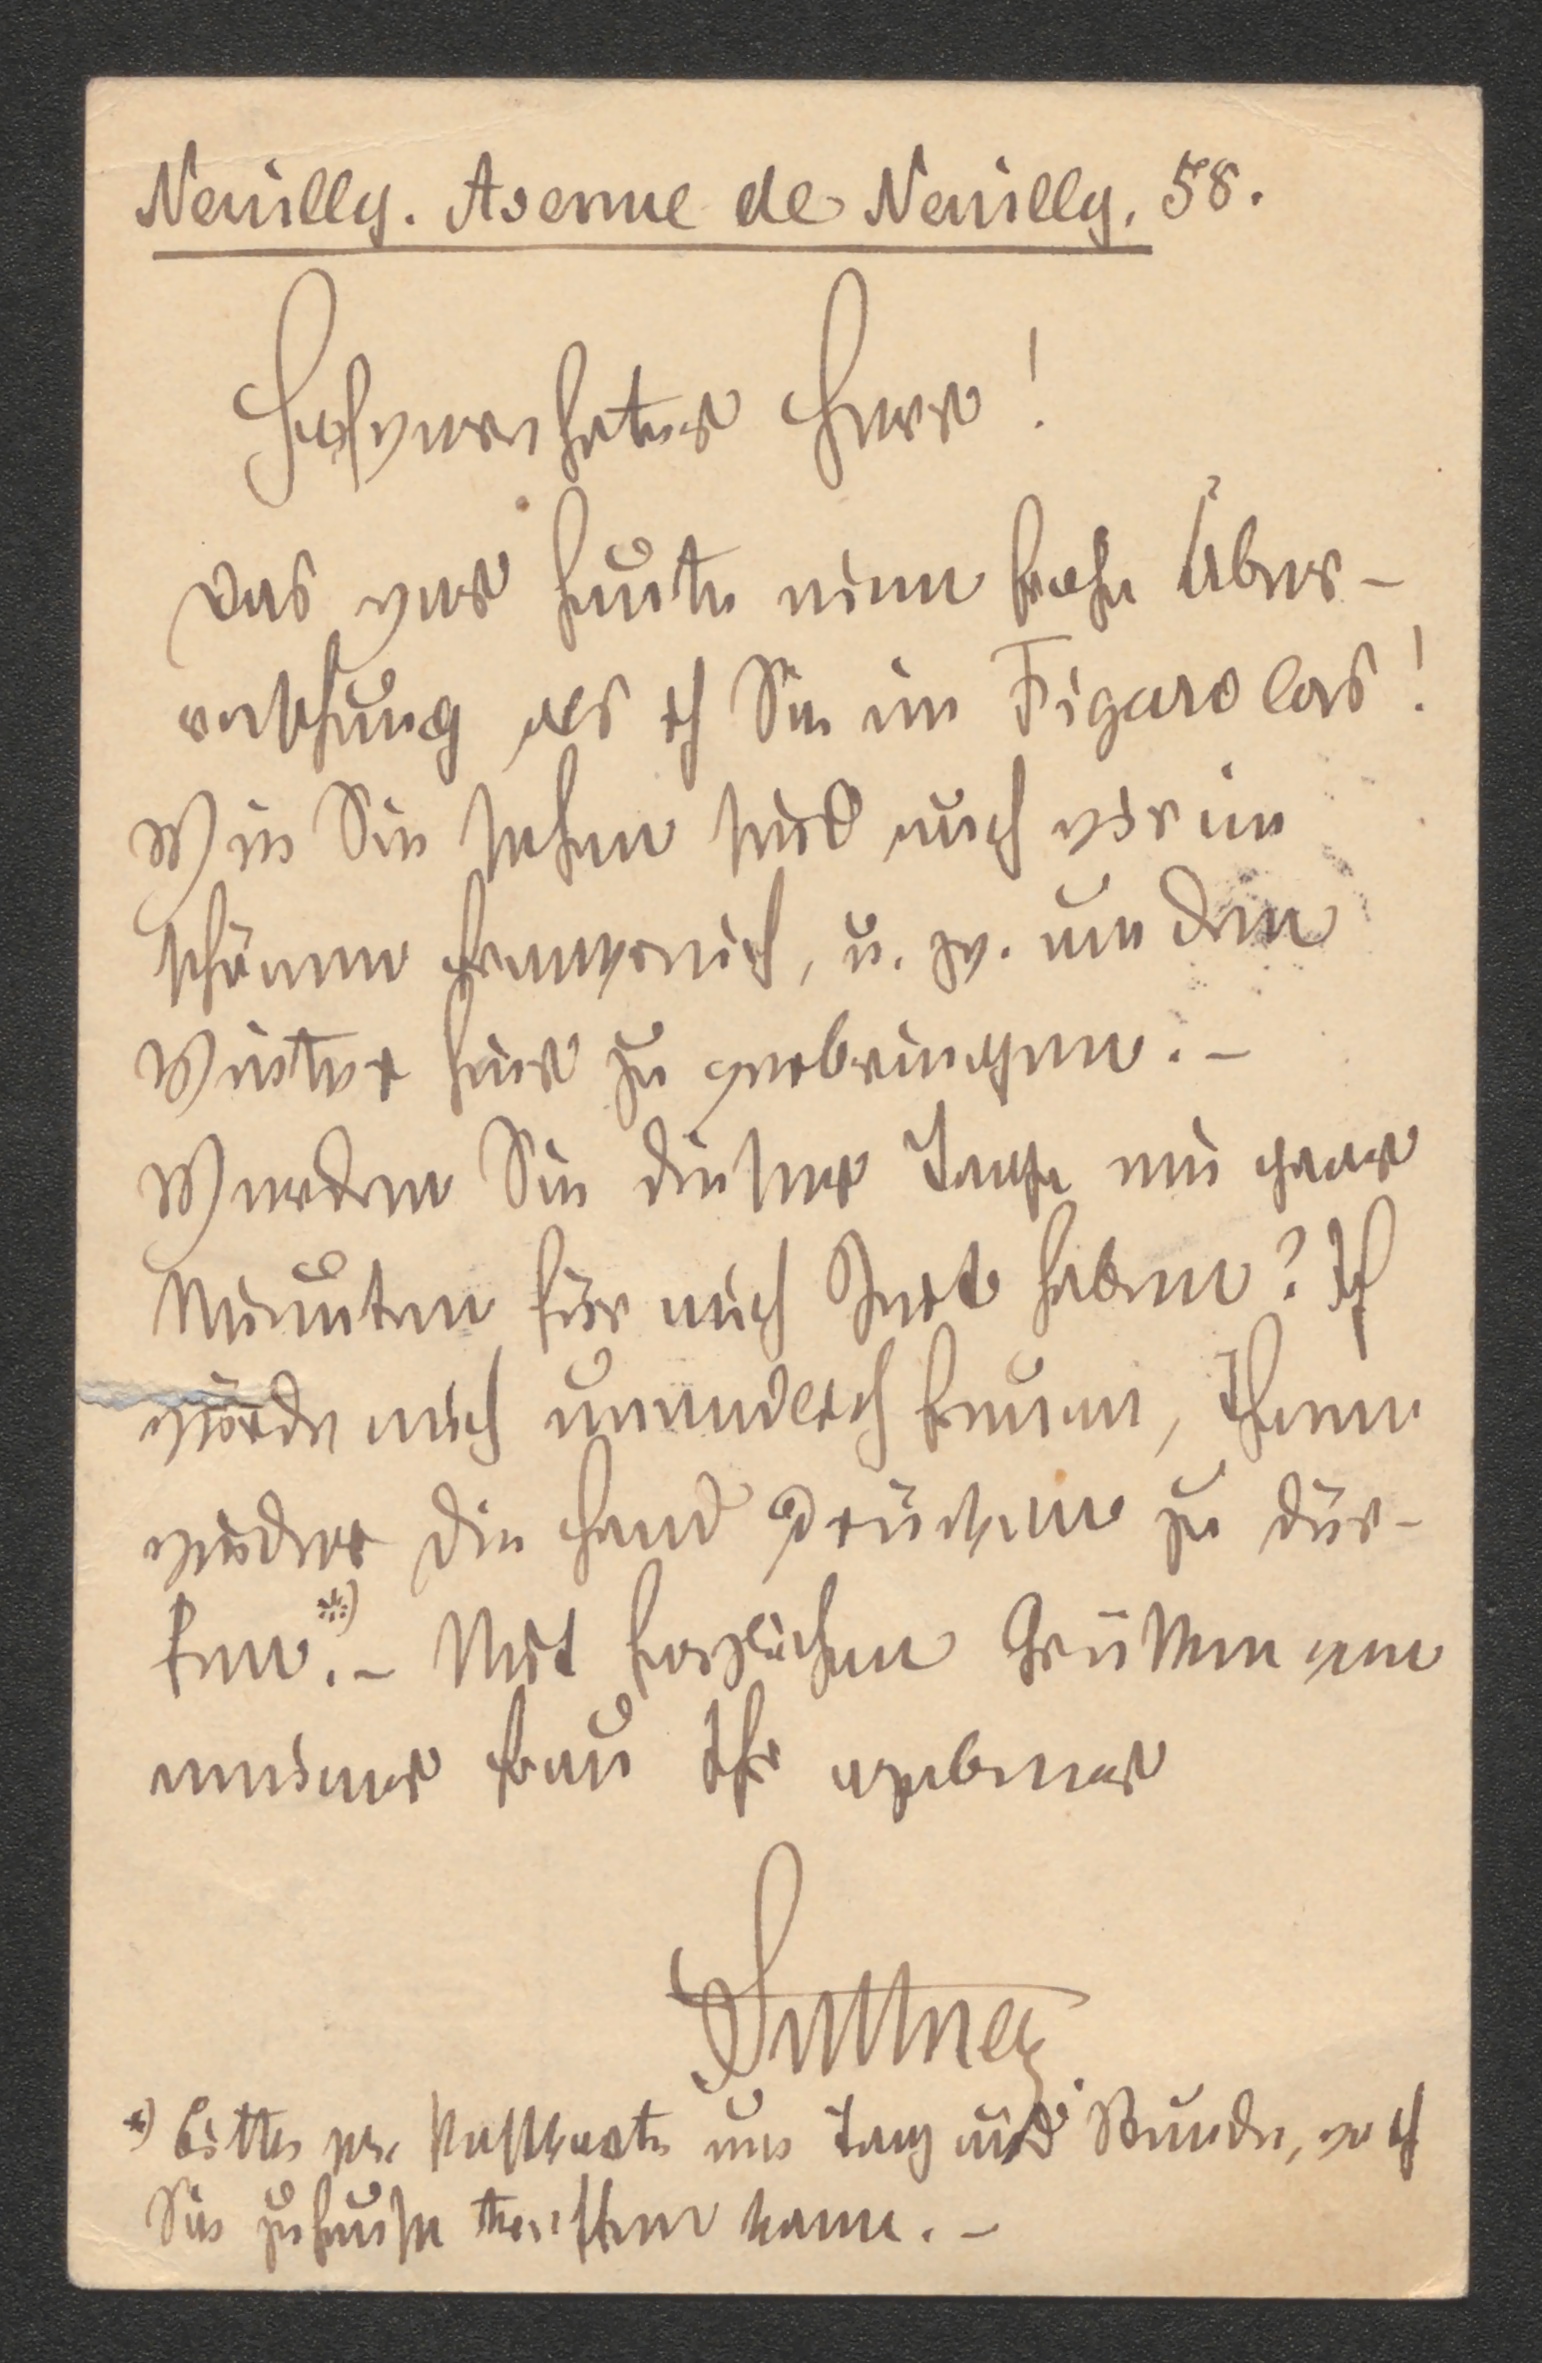 Neuilly. Avenue de Neuilly, 58.
Hochverehrter Herr!
Das war heute eine frohe Über-
raschung als ich Sie im Figaro las!
Wie Sie sehen sind auch wir im
schönen Frankreich, u. zw. um den
Winter hier zu verbringen. –
Werden Sie dieser Tage ein paar
Minuten für mich Zeit haben? Ich
würde mich unendlich freuen, Ihnen
wieder die Hand drücken zu dür-
fen.*) – Mit herzlichen Grüßen von
meiner Frau Ihr ergebener
Suttner
*) Bitte per Postkarte um Tag und Stunde, wo ich
Sie zuhause treffen kann. –